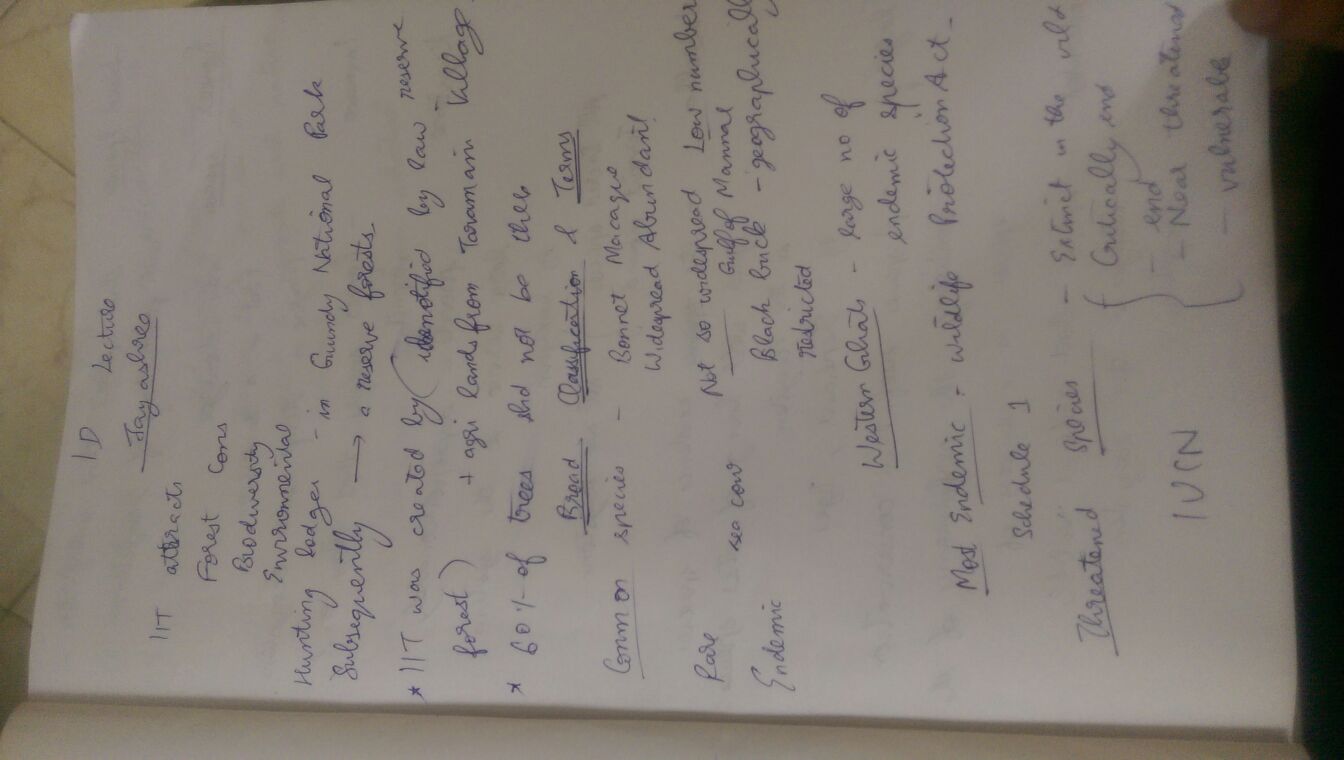 ID Lecture
Jayashree
IIT attracts
Forest Cons
Biodiversity
Environmental
Hunting lodges - in Guindy National Park
Subsequently → a reserve forests.
* IIT was created by (identified by law reserve
forest) + agri lands from Taramani Village.
* 60% of trees shd not be
Broad Classification & Terms
Common species - Bonnet Macaque
Widespread Abundant
Rare Not so widespread Low number
sea cow Gulf of Mannar
Endemic Black buck - geographically
restricted
Western Ghats - large no of
endemic species
Most Endemic - wildlife Protection Act.
Schedule 1
Threatened Species - Extinct in the wild
Critically end
- end
IUCN - Near threatened
- vulnerable